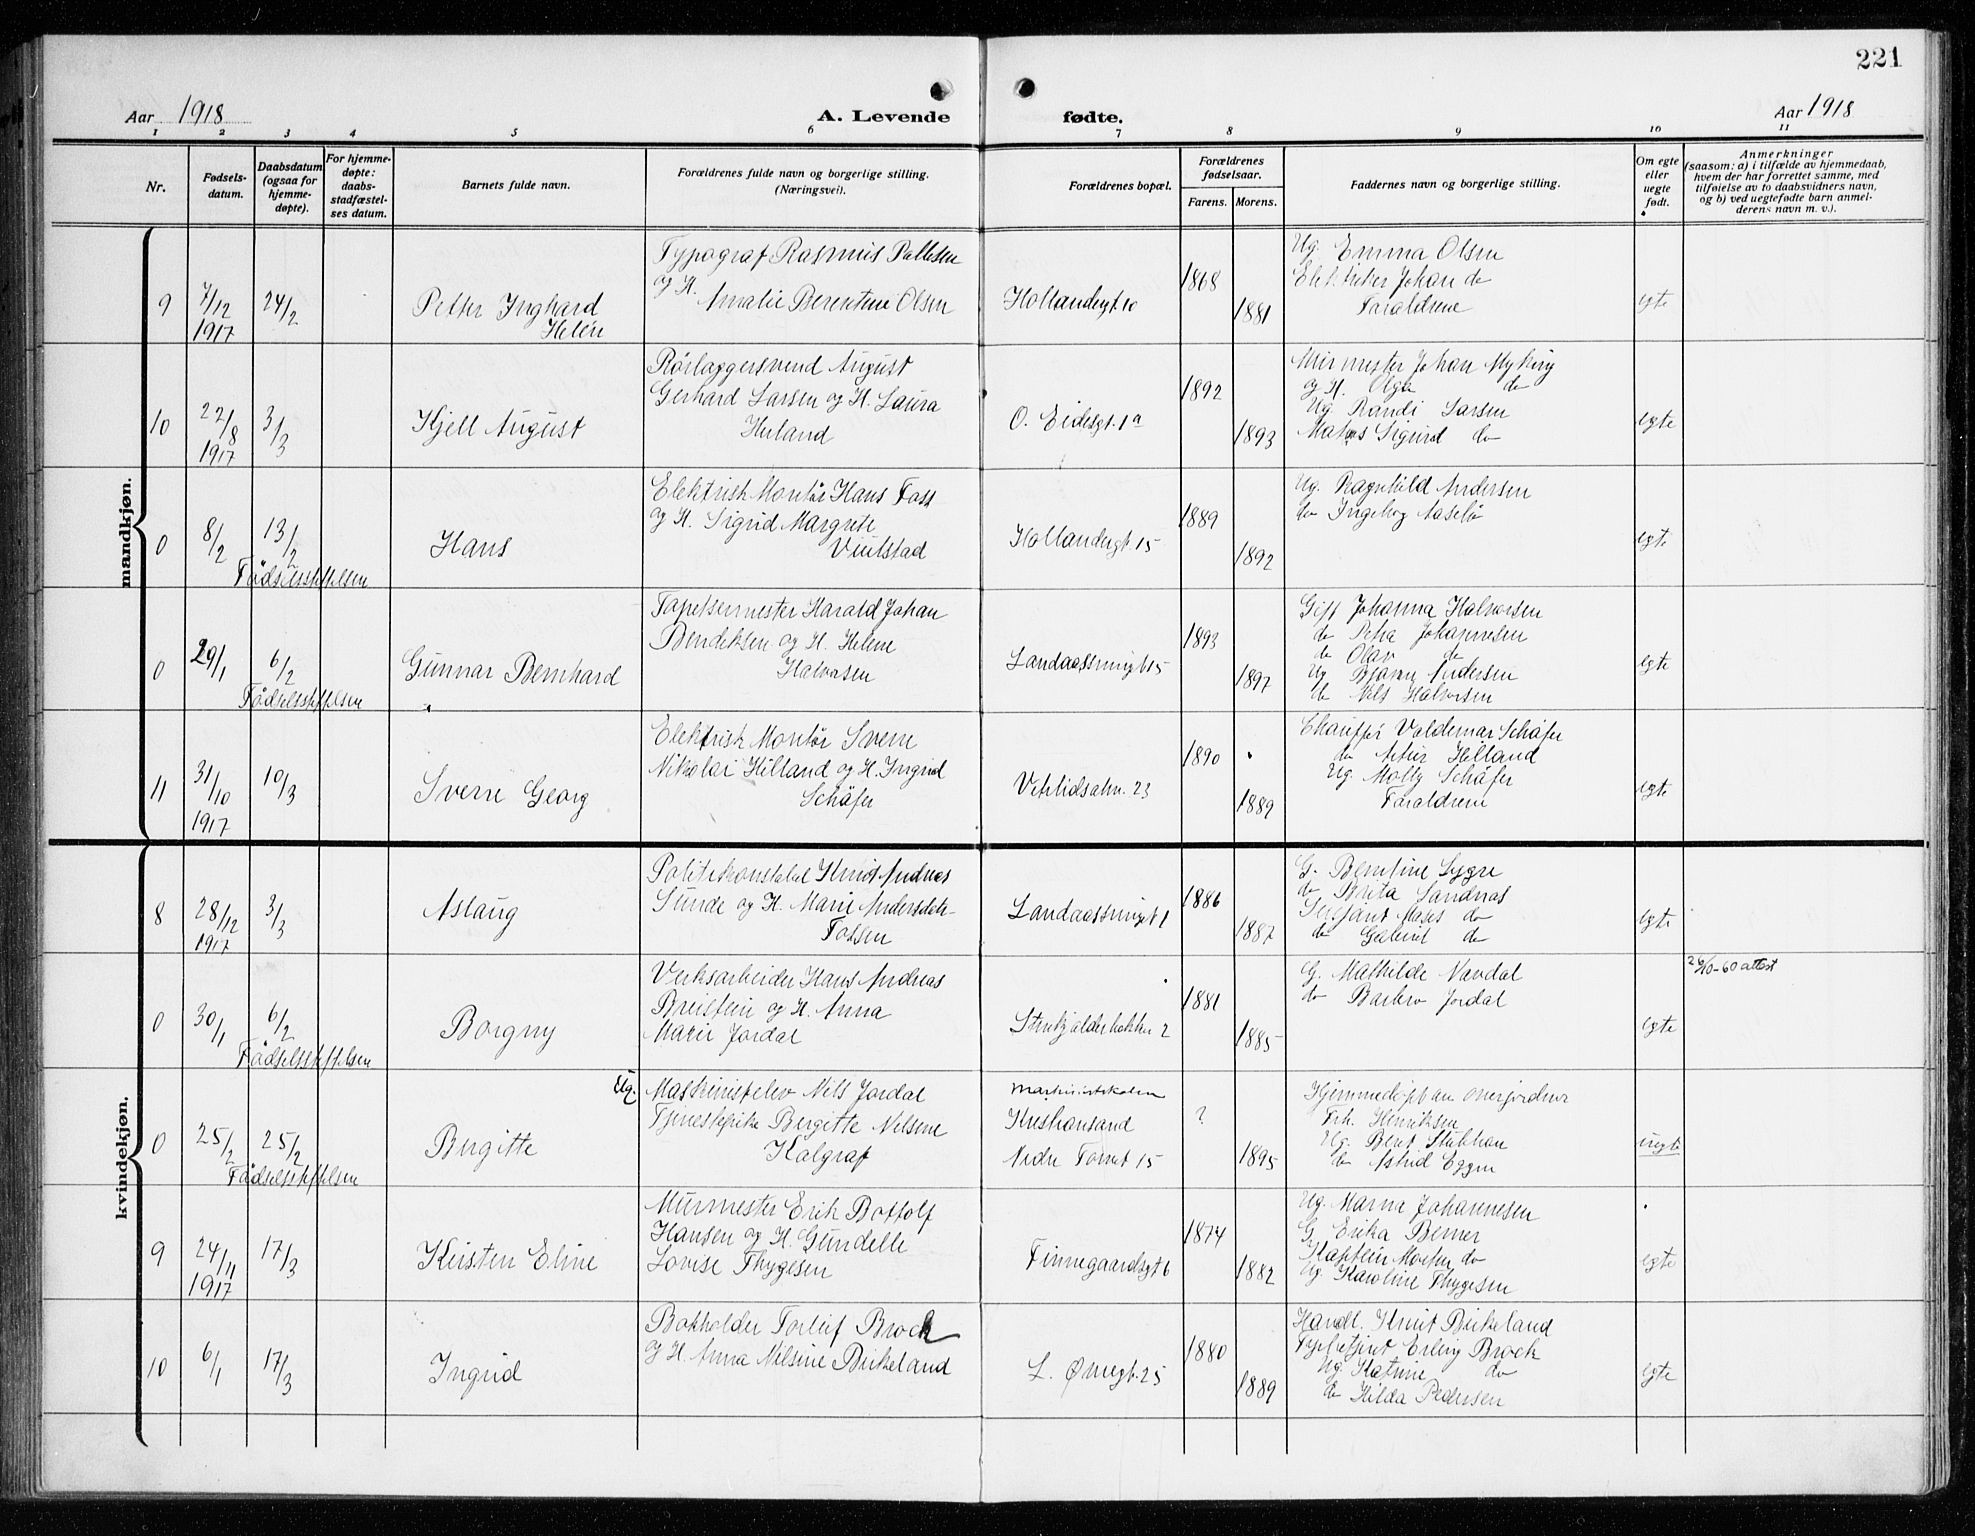 221
Aar 1918 A. Levende fødte. Aar 1918
1 2 3 4 5 6 7 8 9 10 11
Nr.
Fødsels-
datum.
Daabsdatum
(ogsaa for
hjemme-
døpte).
For hjemme-
døpte:
daabs-
stadfæstel-
ses datum.
Barnets fulde navn.
Forældrenes fulde navn og borgerlige stilling.
(Næringsvei).
Forældrenes bopæl.
Forældrenes
fødselsaar.
Farens. Morens.
Faddernes navn og borgerlige stilling.
Om egte
eller
uegte
født.
Anmerkninger
(saasom: a) i tilfælde av hjemmedaab,
hvem der har forrettet samme, med
tilføielse av to daabsvidners navn,
og b) ved uegtefødte barn anmel-
derens navn m. v.).
mandkjøn.
9
7/12
1917
24/2
Petter Inghard
Helén
Typograf Rasmus Pallesen
og H.
Amalie Berentine Olsen
Hollendergt. 10
1868
1881
Ug. Emma Olsen
Elektriker Johan do
Foraldrene
egte
10
22/8
1917
3/3
Kjell August
Rörlaggersvend August
Gerhard Larsen og H. Laura
Huland
O. Eidesgt. 1a
1892
1893
Murmester Johan Myking
og H. Olga do
Ug. Randi Larsen
Sigurd do
egte
0
8/2
13/2
Fødselsstiftelsen
Hans
Elektrisk Montør Hans Foss
og H. Sigrid Margrete
Hollendergt. 15
1889
1892
Ug. Ragnhild Andersen
do Ingeborg
egte
0
29/1
6/2
Fødselsstiftelsen
Gunnar Bernhard
Tapetsermester Harald Johan
Bendiksen og H. Helene
Halvorsen
15
1893
1897
Gift Johanna Halvorsen
do Petra Johannesen
do Olav do
Ug Bjarne Andersen
do Nils Halvorsen
egte
11
31/10
1917
10/3
Sverre Georg
Elektrisk Montør Sverre
Nikolai Hilland og H. Ingrid
Schäfer
Vetrlidsalm. 23
1890
1889
Chauffør Valdemar Schäfer
do Artur Helland
Ug. Molly Schäfer
Foraldrene
egte
kvindekjøn.
8
28/12
1917
3/3
Aslaug
Politikonstabel Knut Andreas
Sunde og H. Marie Andersdatr
1
1886
1887
G. Berntine Sygre
do Brita Sandnas
Sergeant Moses do
do Gabriel do
egte
0
30/1
6/2
Fødselsstiftelsen
Borgny
Verksarbeider Hans Andreas
Breistein og H. Anna
Marie Jordal
2
1881
1885
G. Mathilde Nordal
do Barbro Jordal
egte
26/10-60 attest
0
25/2
25/2
Fødselsstiftelsen
Birgitte
Ug.
Maskinistelev Nils Jordal
Tjenestepike Bergitte Nilsine
Kalgraf
Maskinistskolen
Kristiansand
Nedre Torvet 15
?
1895
Hjemmedøpt av overjordmor
Frk. Henriksen
Ug. Beret Stubhan
do Astrid Eggen
uegte
9
24/11
1917
17/3
Kirsten Eline
Murmester Erik Bottolf
Hansen og H. Gundelle
Lovise Thygesen
Finnegaardsgt 6
1874
1882
Ug. Marna Johannesen
G. Erika Berner
Kaptein Morten do
Ug. Karoline Thygesen
egte
10
6/1
17/3
Ingrid
Bokholder Torleif Brock
og H. Anna Nilsine Birkeland
L. Øvregt. 25
1880
1889
Handl. Knut Birkeland
Erling Brock
Ug. Katrine do
do Hilda Pedersen
egte